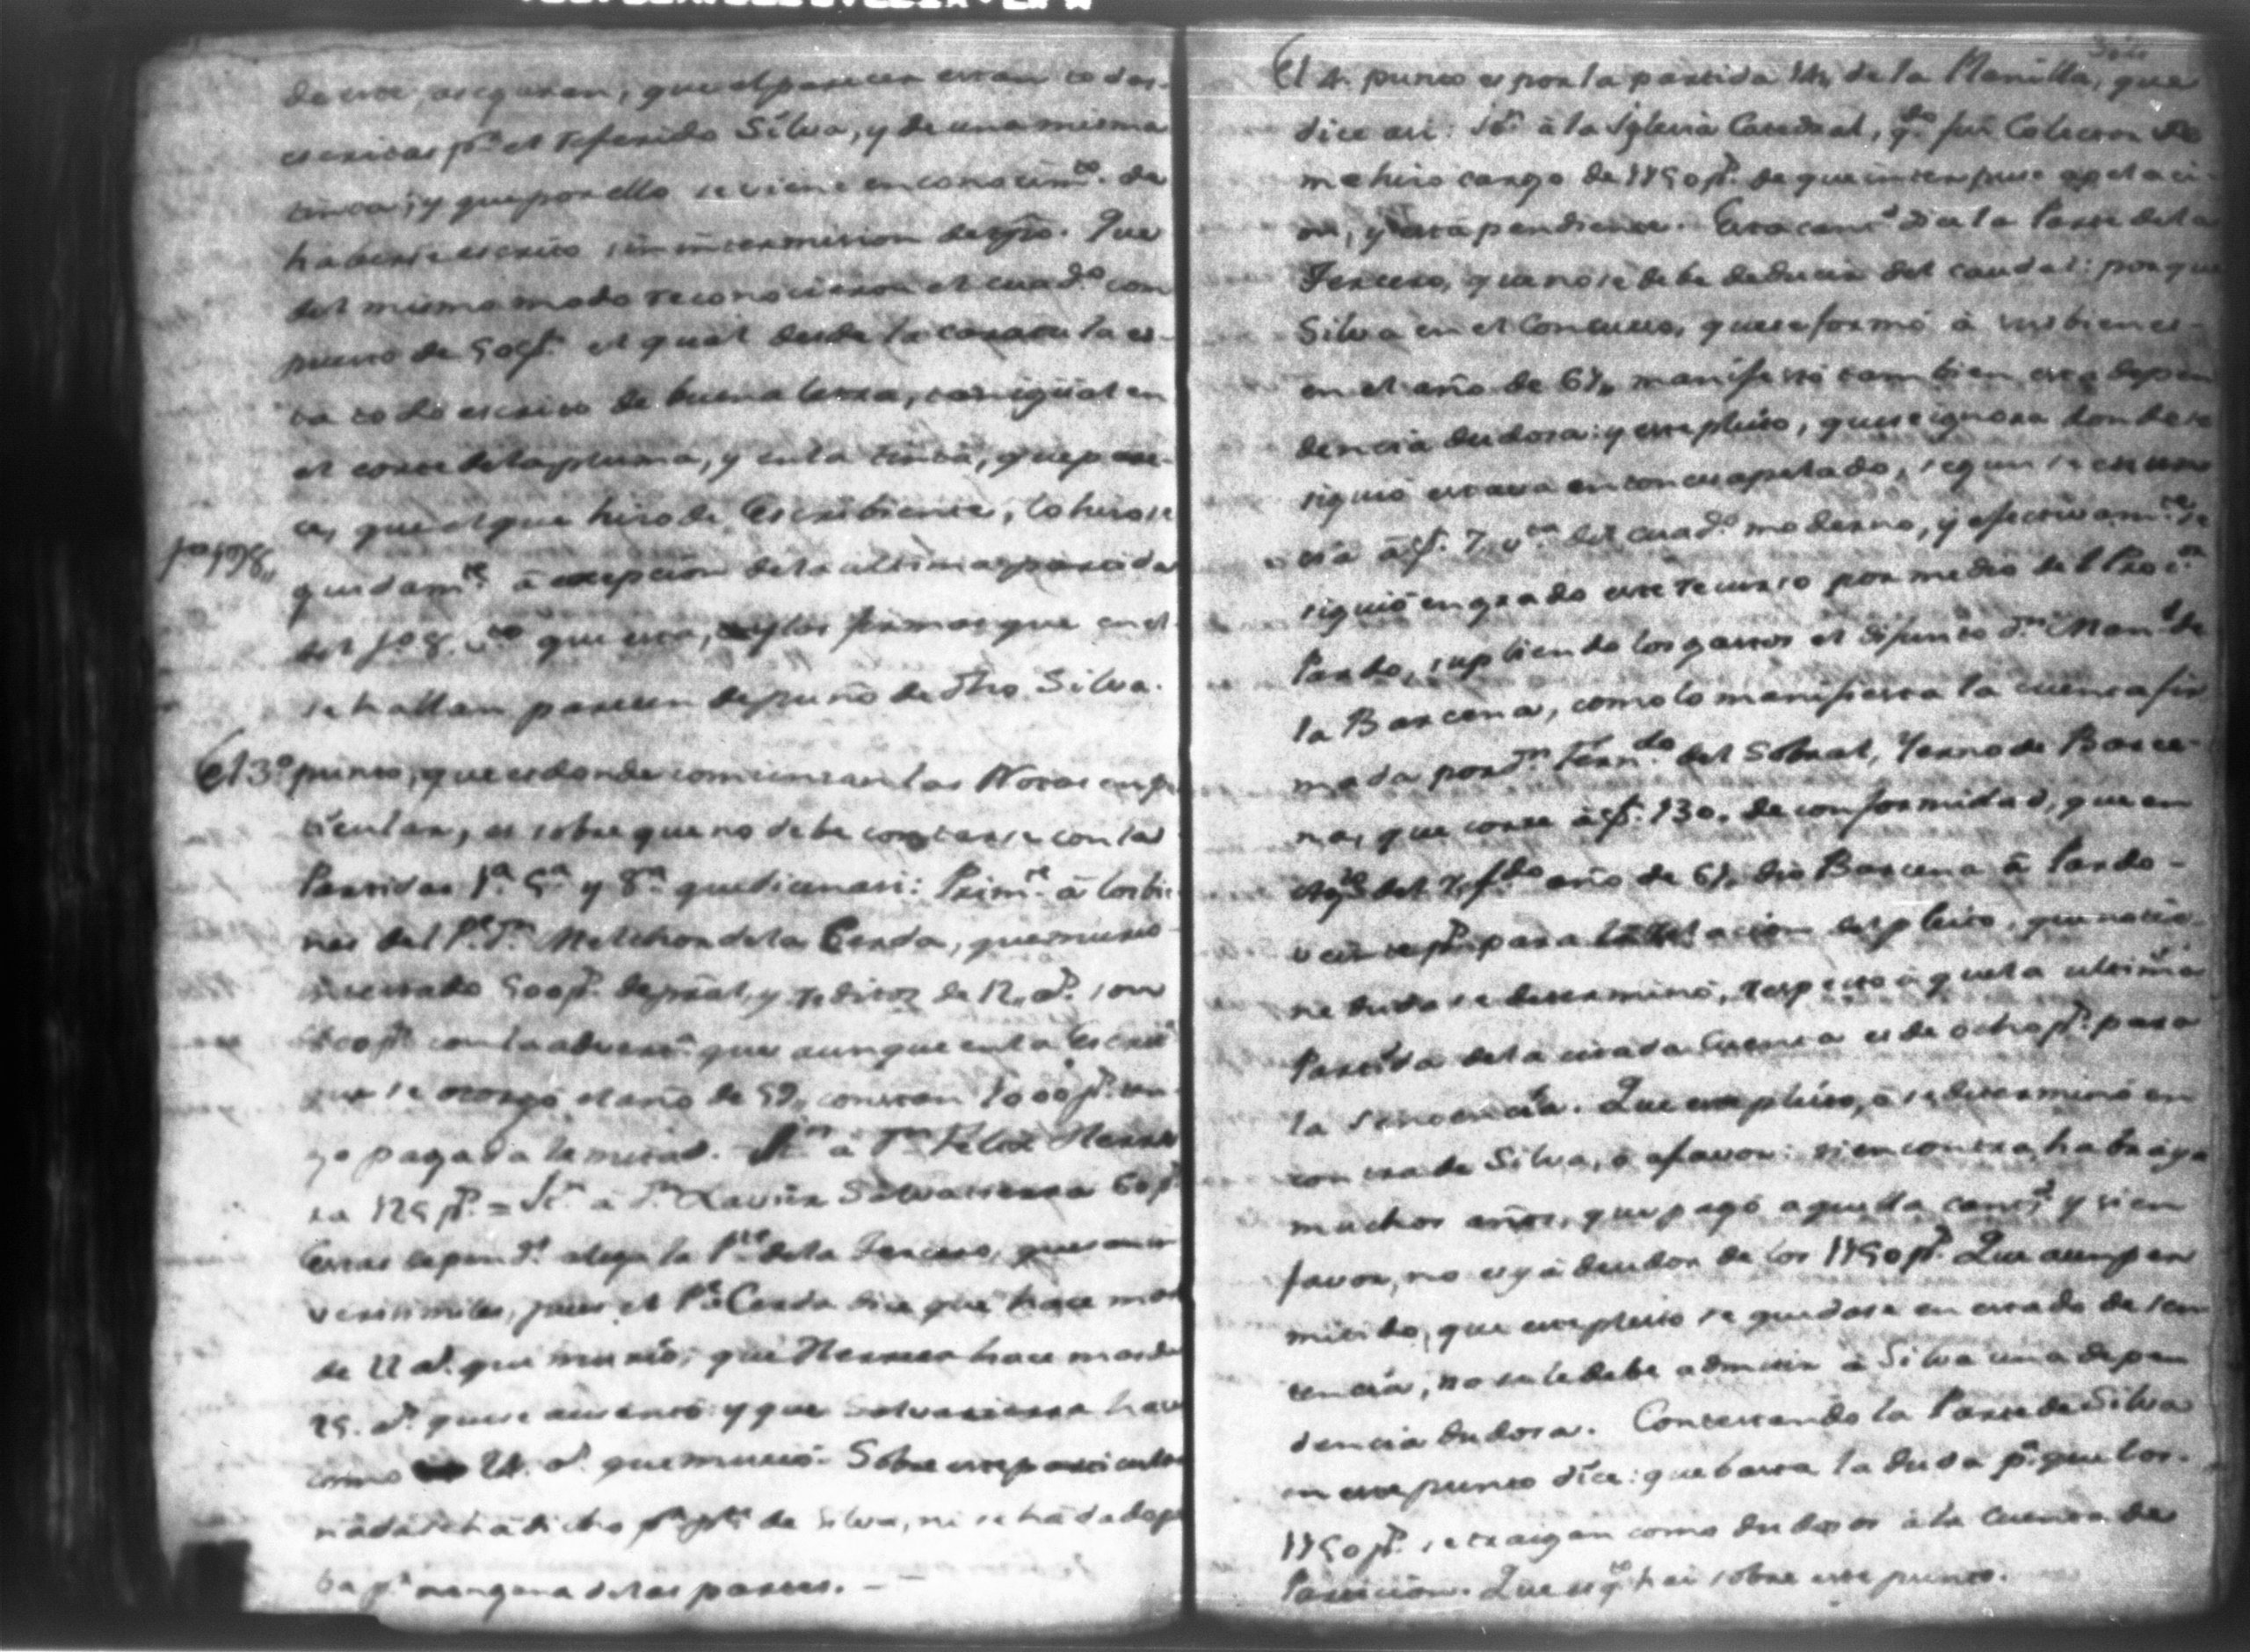 de este, aseguran, que al parecer estan todas
escritas pr. el referido Silva, y de una misma
tinta; y que por ello se viene en conocimto. de
haberse escrito sin intermision de
del mismo modo reconocieron el quadno. com
puesto de 50 f. el qual desde la caratula es-
ta todo escrito de buena letra, tan igual en
el corte de la pluma, y en la tinta, que pare-
ce, que el que hizo de Escribiente, lo hizo se
guidamte. â excepcion de la ultima partida
del que esta, y las firmas que en el
se hallan parecen de puño de dho Silva.
El 3º. punto, que es donde comienzan las Notas en par
ticular, es sobre que no debe contarse con las
Partidas 1ª. 5ª. y 8ª. que dicen asi: Primte. â los bie
nes del Pe. Dn. Melchor de la Cerda, que murio
intestado 500 ps. de pral, y reditos de 12 as. son
con la advera. que aunque en la Escrit
que se otorgó el año de 59, constan 1000 ps. ten
go pagada la mitad. Itn. â Dn. Felix Herre
ra 125 ps. = Itn. â Dn. Xavier Salvatierra 60 ps
Estas depends. alega la Pte. de la Tercero, que son in
verisimiles, pues el Pe. Cerda dice que hace mas
de 22 as. que murió; que Herrera hace mas de
25. as. que se ausentó: y que Salvatierra hace
como 24. as. que murió. Sobre este particular
nada se ha dicho pr. pte. de Silva, ni se ha dado prue
ba pr. ninguna de las partes.
El 4º. punto es por la partida 14, de la Planilla, que
dice asi: Itn. â la Iglesia Catedral, qdo. fui Colector se
me hizo cargo de 1150 ps. de que interpuse apelaci-
on, y esta pendiente. Esta cantd. dice la Parte de la
Tercero, que no se debe deducir del caudal: porque
Silva en el Concurso, que se formó â sus bienes
en el año de 67, manifestó tambien esta depen
dencia dudosa: y este pleito, que se ignora donde se
siguió estaba entonces apelado, segun se
cia â f. 7, vta. del quadno. moderno, y efectivamte. se
siguió en grado este recurso por medio del Procor.
Pardo, supliendo los gastos el difunto Dn. Manl. de
la Barcena, como lo manifiesta la cuenta fir
mada por Dn. Ferndo. del Sobral, Yerno de Barce-
na, que corre â f. 130. de conformidad, que en
Agto. del año de 67, dio Barcena â Pardo
veinte ps. para la del pleito, que no tie-
ne duda se determinó, respecto â que la ultima
Partida de la citada Cuenta es de ocho ps. para
la Sentencia. Que este pleito, ô se determinó en
contra de Silva, ô a favor: si en contra, habrá ya
muchos años, que pagó aquella cantd. y si en
favor, no es ya deudor de los 1150 ps. Que aun per
mitido, que este pleito se quedase en estado de sen
tencia, no se le debe admitir â Silva una depen
dencia dudosa. Contestando la Parte de Silva
en este punto dice: que basta la duda pa. que los
1150 ps. se traigan como dudosos â la Cuenta de
Particion. Que es qto. hai sobre este punto.